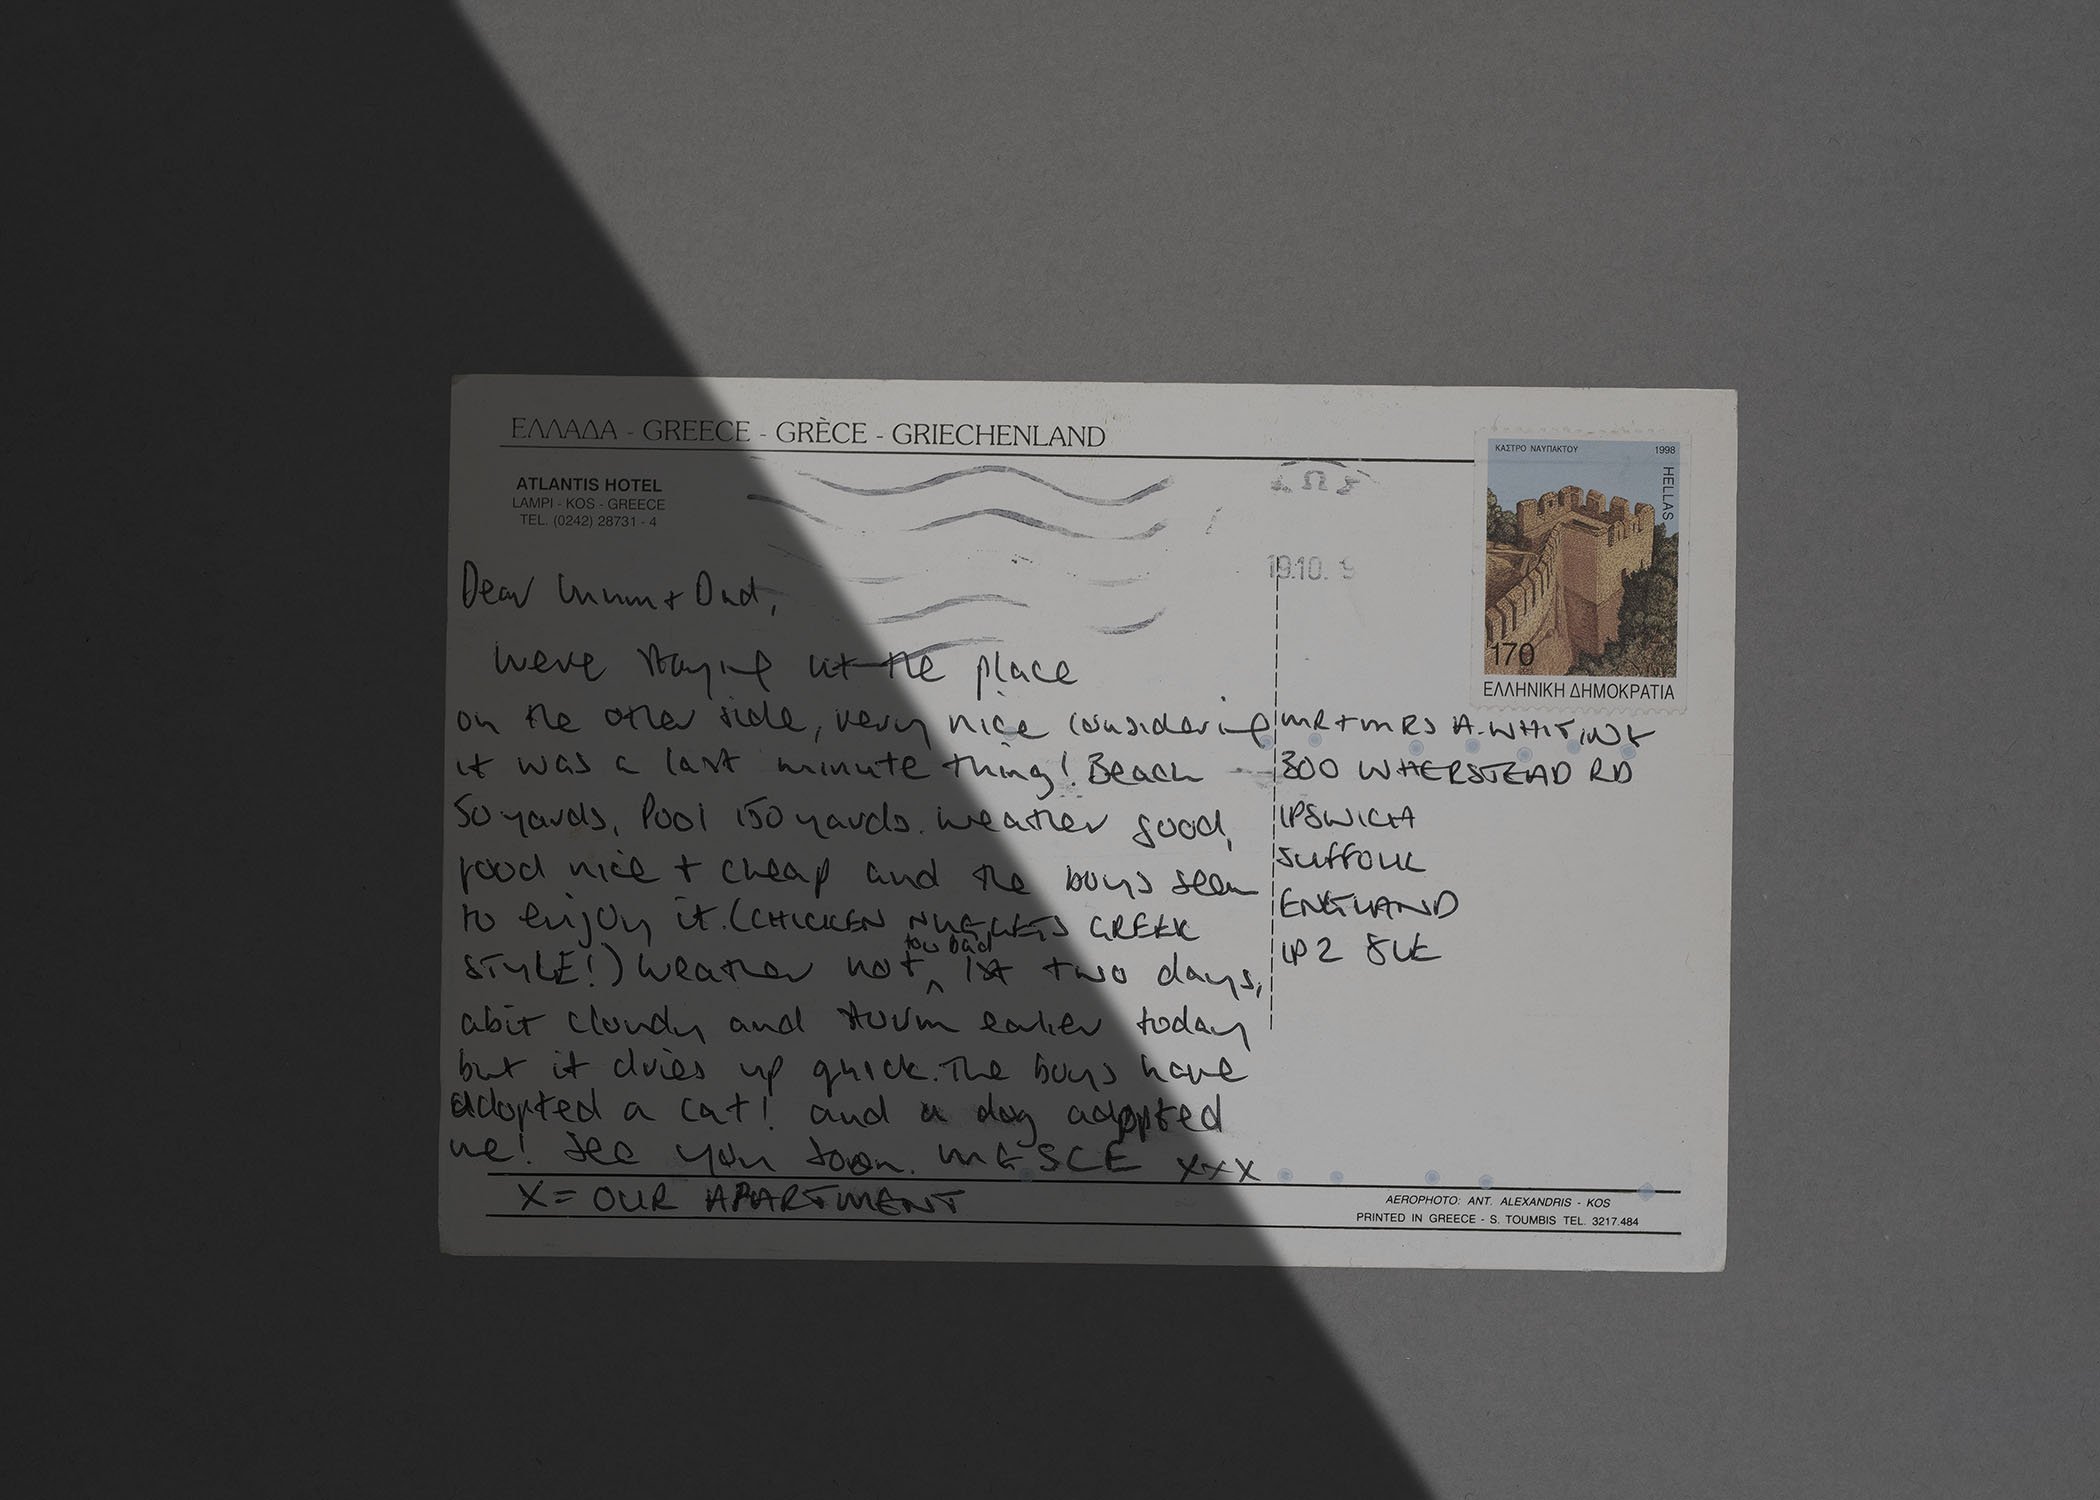 ΕΛΛΑΔΑ - GREECE - GRÈCE - GRIECHENLAND
ATLANTIS HOTEL
LAMPI - KOS - GREECE
TEL. (0242) 28731 - 4
Dear Mum + Dad,
Were staying at the place
on the other side, very nice considering
it was a last minute thing! Beach
50 yards, Pool 150 yards. Weather good,
food nice + cheap and the boys seem
to enjoy it. (CHICKEN NUGGETS GREEK
STYLE!) Weather not too bad 1st two days,
abit cloudy and storm earlier today
but it dries up quick. The boys have
adopted a cat! and a dog adopted
me! See you soon. xxx
X = OUR APARTMENT
ΚΑΣΤΡΟ ΝΑΥΠΑΚΤΟΥ 1998
HELLAS
170
ΕΛΛΗΝΙΚΗ ΔΗΜΟΚΡΑΤΙΑ
19.10. 9
MR + MRS A. WHITING
300 WHERSTEAD RD
IPSWICH
SUFFOLK
ENGLAND
IP2 8LE
AEROPHOTO: ANT. ALEXANDRIS - KOS
PRINTED IN GREECE - S. TOUMBIS TEL. 3217.484